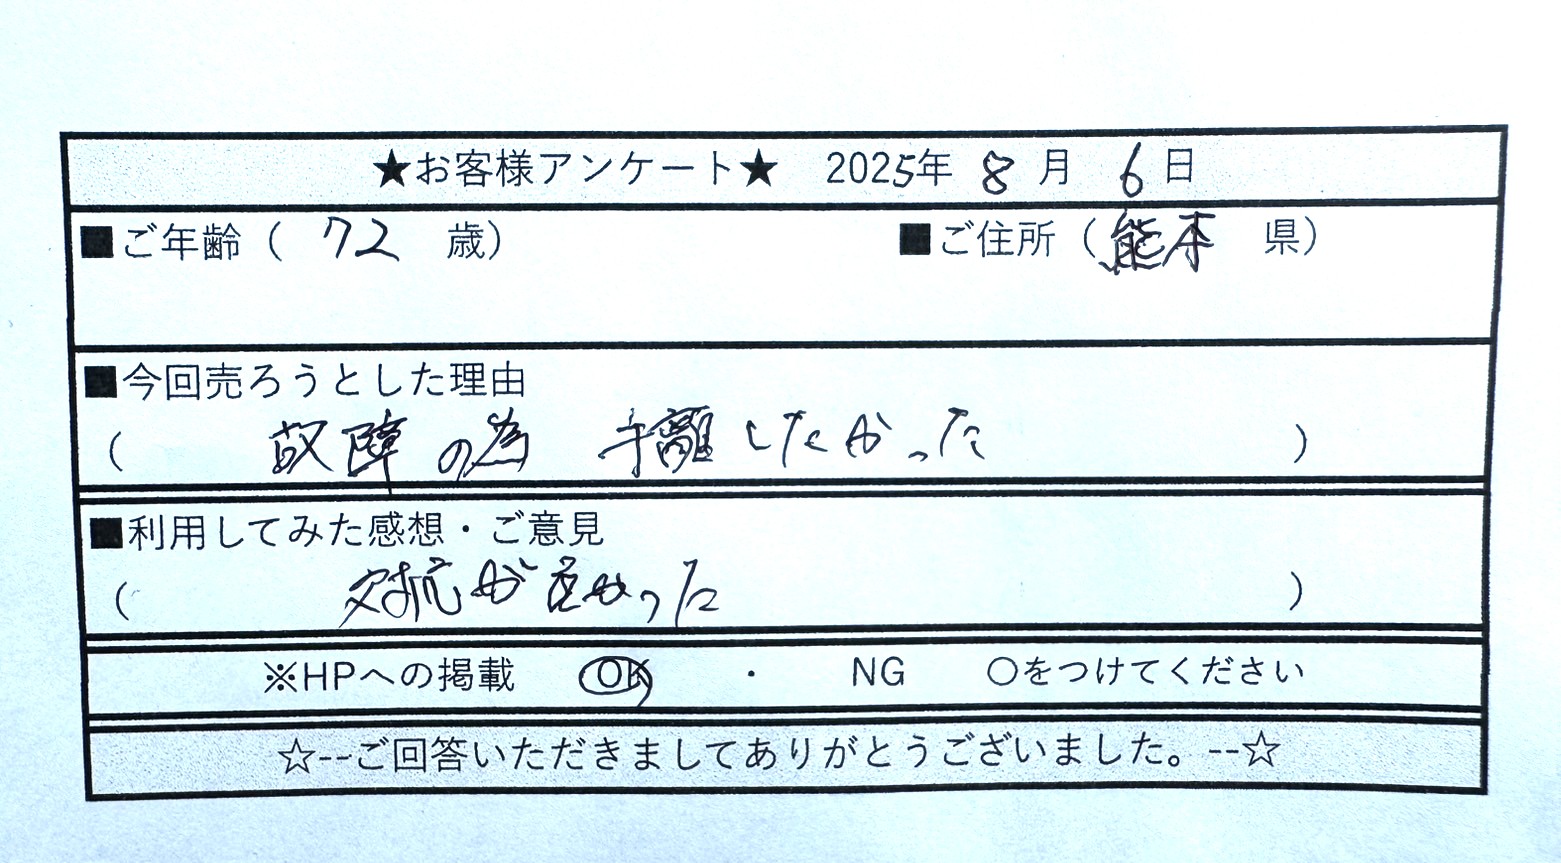 ★お客様アンケート★ 2025年 8 月 6 日
■ご年齢( 72 歳) ■ご住所(熊本 県)
■今回売ろうとした理由
( 故障の為 手離したかった )
■利用してみた感想・ご意見
( 対応が良かった )
※HPへの掲載 OK ・ NG ○をつけてください
☆--ご回答いただきましてありがとうございました。--☆